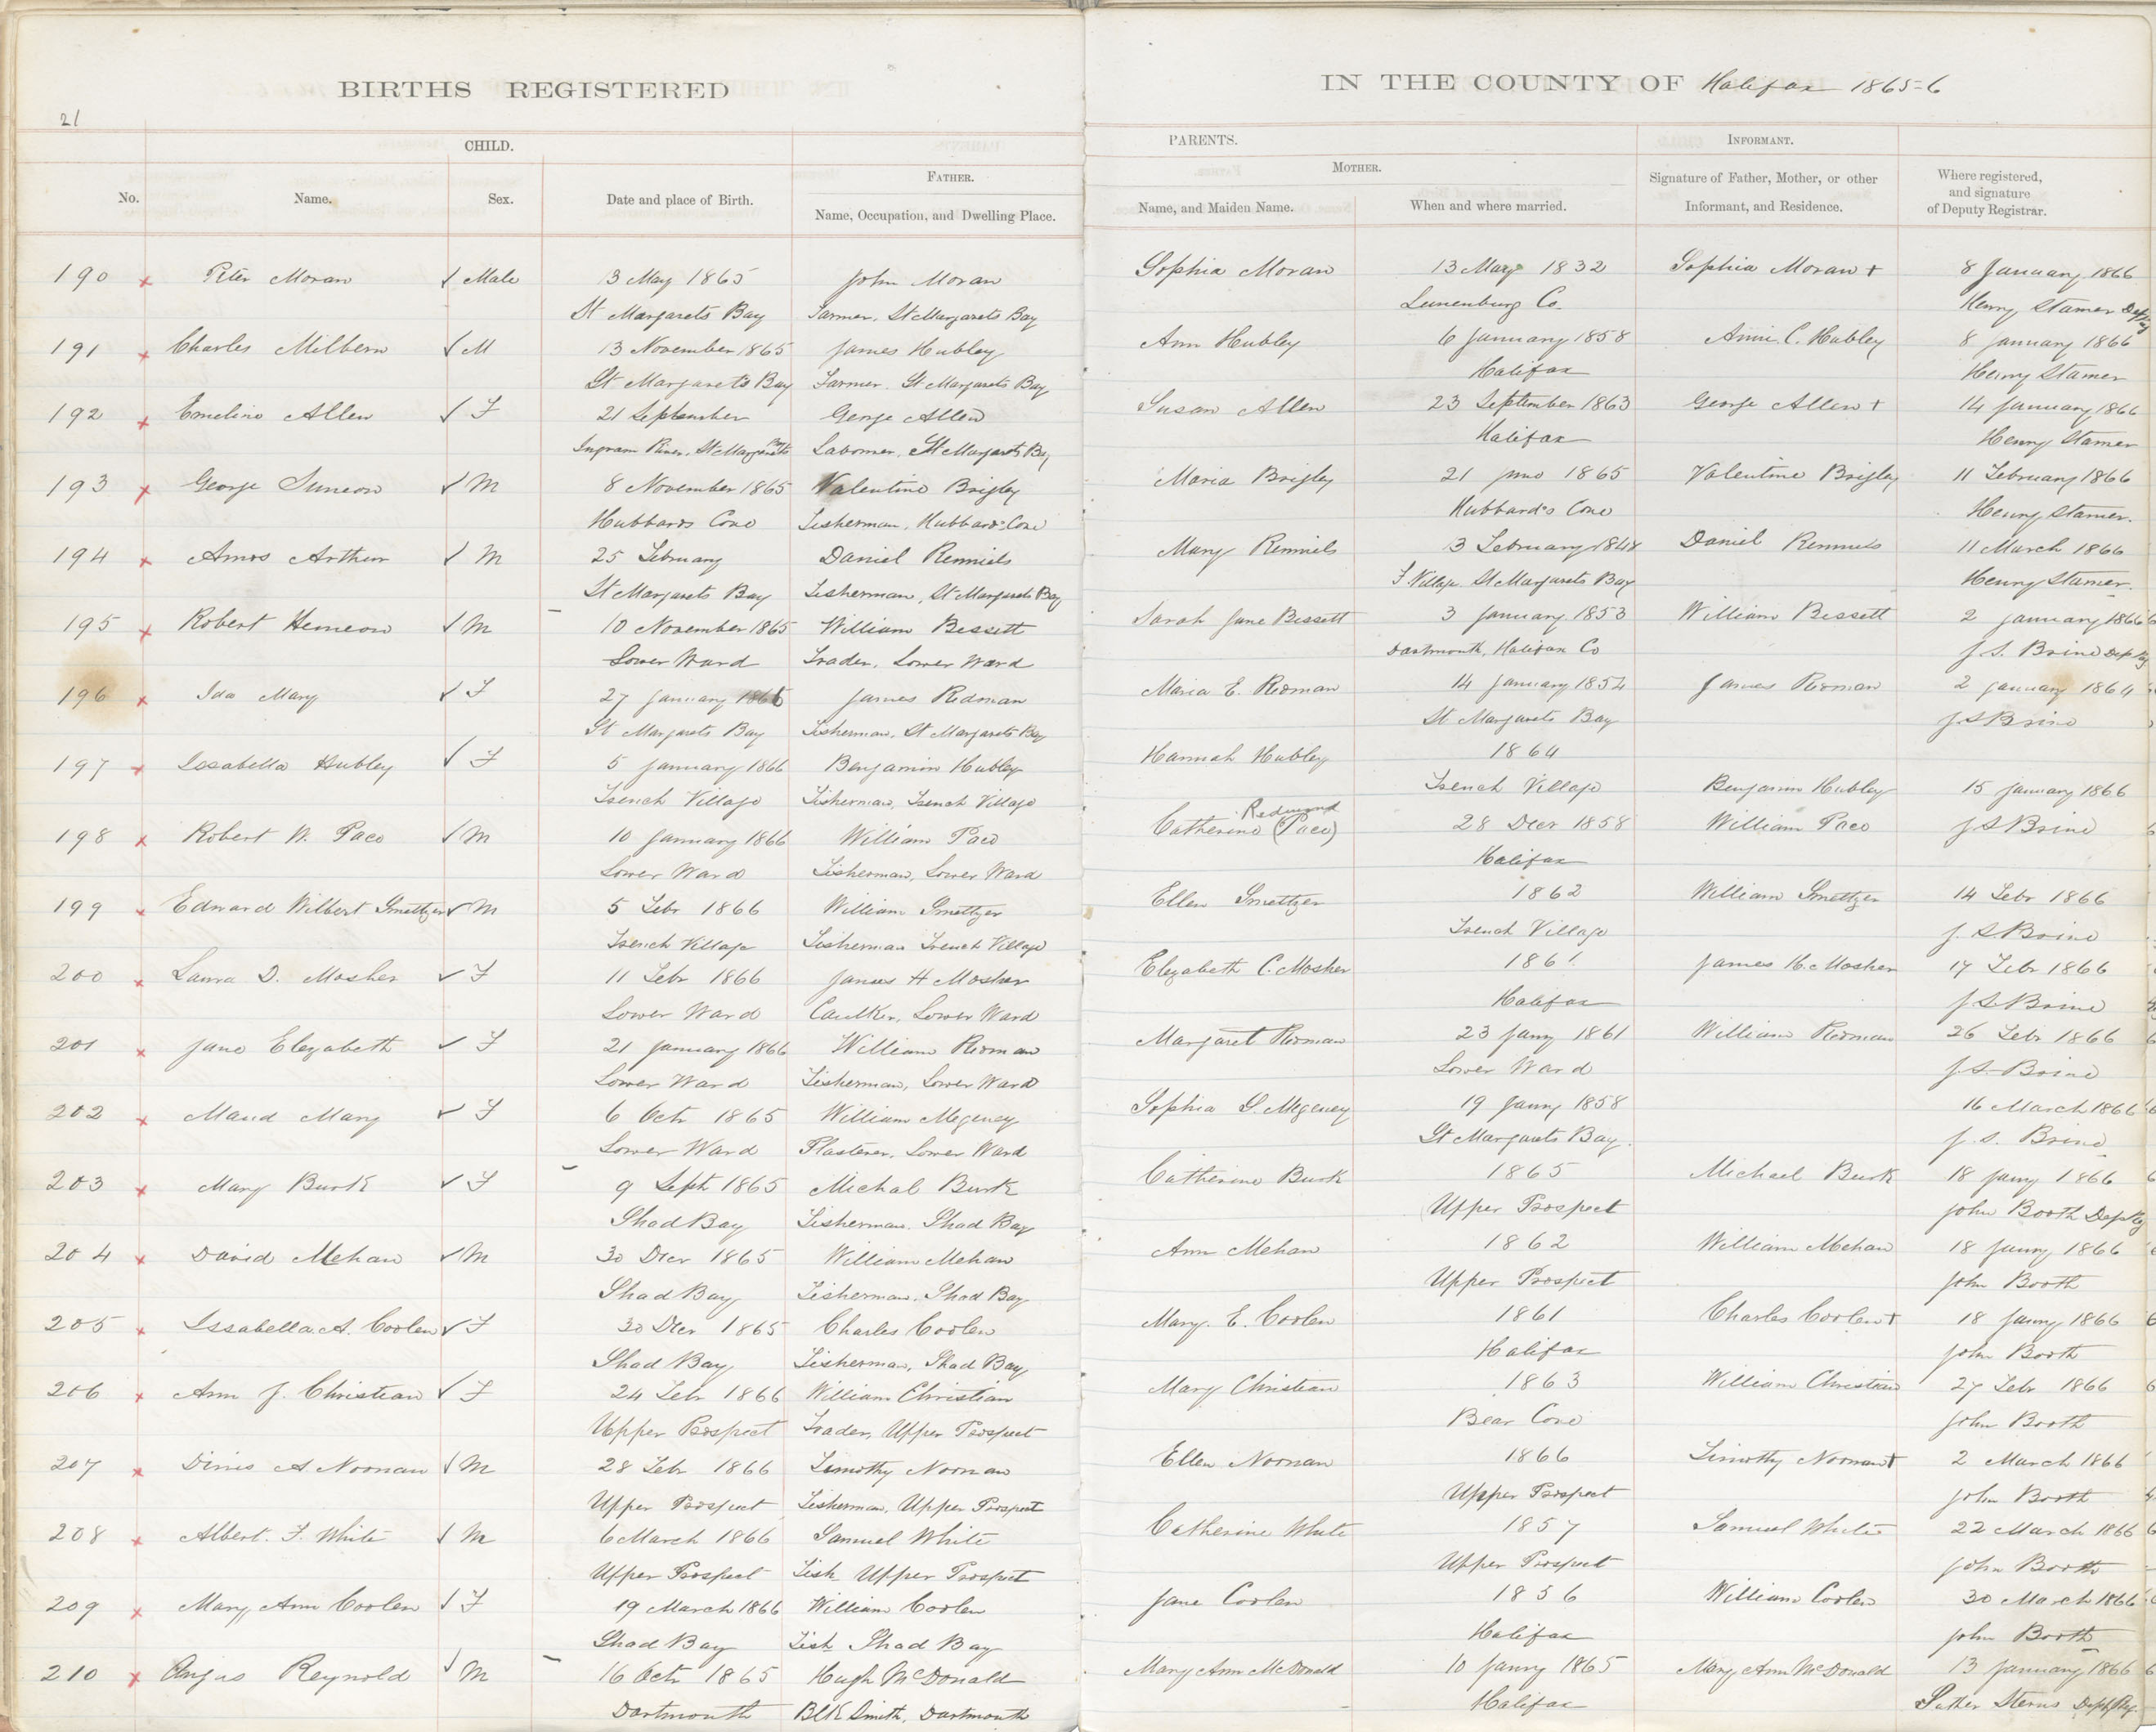 BIRTHS REGISTERED
IN THE COUNTY OF Halifax 1865-6
21
CHILD.
PARENTS.
INFORMANT.
No.
Name.
Sex.
Date and place of Birth.
FATHER.
Name, Occupation, and Dwelling Place.
MOTHER.
Name, and Maiden Name.
When and where married.
Signature of Father, Mother, or other
Informant, and Residence.
Where registered,
and signature
of Deputy Registrar.
190 x Peter Moran ✓ Male 13 May 1865 John Moran Sophia Moran 13 May 1832 Sophia Moran + 8 January 1866
St Margarets Bay Farmer, St Margarets Bay Lunenburg Co. Henry Stamer
191 x Charles Milbern ✓ M 13 November 1865 James Hubley Ann Hubley 6 January 1858 Annie C. Hubley 8 January 1866
St Margarets Bay Farmer. St Margarets Bay Halifax Henry Stamer
192 x Emeline Allen ✓ F 21 September George Allen Susan Allen 23 September 1863 George Allen + 14 January 1866
Ingram River, St Margarets Bay Labourer, St Margarets Bay Halifax Henry Stamer
193 x George Simeon ✓ M 8 November 1865 Valentine Brigley Maria Brigley 21 June 1865 Valentine Brigley 11 February 1866
Hubbards Cove Fisherman, Hubbards Cove Hubbard's Cove Henry Stamer.
194 x Amos Arthur ✓ M 25 February Daniel Renniels Mary Renniels 3 February 1848 Daniel Renniels 11 March 1866
St Margarets Bay Fisherman, St Margarets Bay F. Village St Margarets Bay Henry Stamer.
195 x Robert Hemeon ✓ M 10 November 1865 William Bessett Sarah Jane Bessett 3 January 1853 William Bessett 2 January 1866
Lower Ward Trader, Lower Ward Dartmouth, Halifax Co J. S. Brine Dep Reg
196 x Ida Mary ✓ F 27 January 1865 James Redman Maria E. Redman 14 January 1854 James Redman 2 January 1864
St Margarets Bay Fisherman, St Margarets Bay St Margarets Bay J. S Brine
197 x Issabella Hubley ✓ F 5 January 1866 Benjamin Hubley Hannah Hubley 1864
French Village Fisherman, French Village French Village Benjamin Hubley 15 January 1866
Redmond
198 x Robert W. Pace ✓ M 10 January 1866 William Pace Catherine (Pace) 28 Decr 1858 William Pace J S Brine
Lower Ward Fisherman, Lower Ward Halifax
199 x Edward Wilbert Smeltzer ✓ M 5 Febr 1866 William Smeltzer Ellen Smeltzer 1862 William Smeltzer 14 Febr 1866
French Village Fisherman French Village French Village J. S. Brine
200 x Laura D. Mosher ✓ F 11 Febr 1866 James H Mosher Elezabeth C. Mosher 1861 James H. Mosher 17 Febr 1866
Lower Ward Caulker, Lower Ward Halifax J. S. Brine
201 x Jane Elezabeth ✓ F 21 January 1866 William Redman Margaret Redman 23 Jany 1861 William Redman 26 Febr 1866
Lower Ward Fisherman, Lower Ward Lower Ward J. S. Brine
202 x Maud Mary ✓ F 6 Octr 1865 William Megeney Sophia S. Megeney 19 Jany 1858 16 March 1866
Lower Ward Plasterer, Lower Ward St Margarets Bay. J. S. Brine
203 x Mary Burk ✓ F 9 Sept 1865 Michal Burk Catherine Burk 1865 Michael Burk 18 Jany 1866
Shad Bay Fisherman. Shad Bay Upper Prospect John Booth Dep Reg
204 x David Mehan ✓ M 30 Decr 1865 William Mehan Ann Mehan 1862 William Mehan 18 Jany 1866
Shad Bay Fisherman. Shad Bay Upper Prospect John Booth
205 x Issabella A. Coolen ✓ F 30 Decr 1865 Charles Coolen Mary. E. Coolen 1861 Charles Coolen + 18 Jany 1866
Shad Bay Fisherman, Shad Bay Halifax John Booth
206 x Ann J. Christian ✓ F 24 Febr 1866 William Christian Mary Christian 1863 William Christian 27 Febr 1866
Upper Prospect Trader, Upper Prospect Bear Cove John Booth
207 x Dinis A Noonan ✓ M 28 Febr 1866 Timothy Noonan Ellen Noonan 1866 Timothy Noonan + 2 March 1866
Upper Prospect Fisherman, Upper Prospect Upper Prospect John Booth
208 x Albert. F. White ✓ M 6 March 1866 Samuel White Catherine White 1857 Samuel White 22 March 1866
Upper Prospect Fish Upper Prospect Upper Prospect John Booth
209 x Mary Ann Coolen ✓ F 19 March 1866 William Coolen Jane Coolen 1856 William Coolen 30 March 1866
Shad Bay Fish Shad Bay Halifax John Booth
210 x Angus Reynold ✓ M 16 Octr 1865 Hugh McDonald Mary Ann McDonald 10 Janry 1865 Mary Ann McDonald 13 January 1866
Dartmouth Blk Smith, Dartmouth Halifax Luther Sterns Dept Reg.